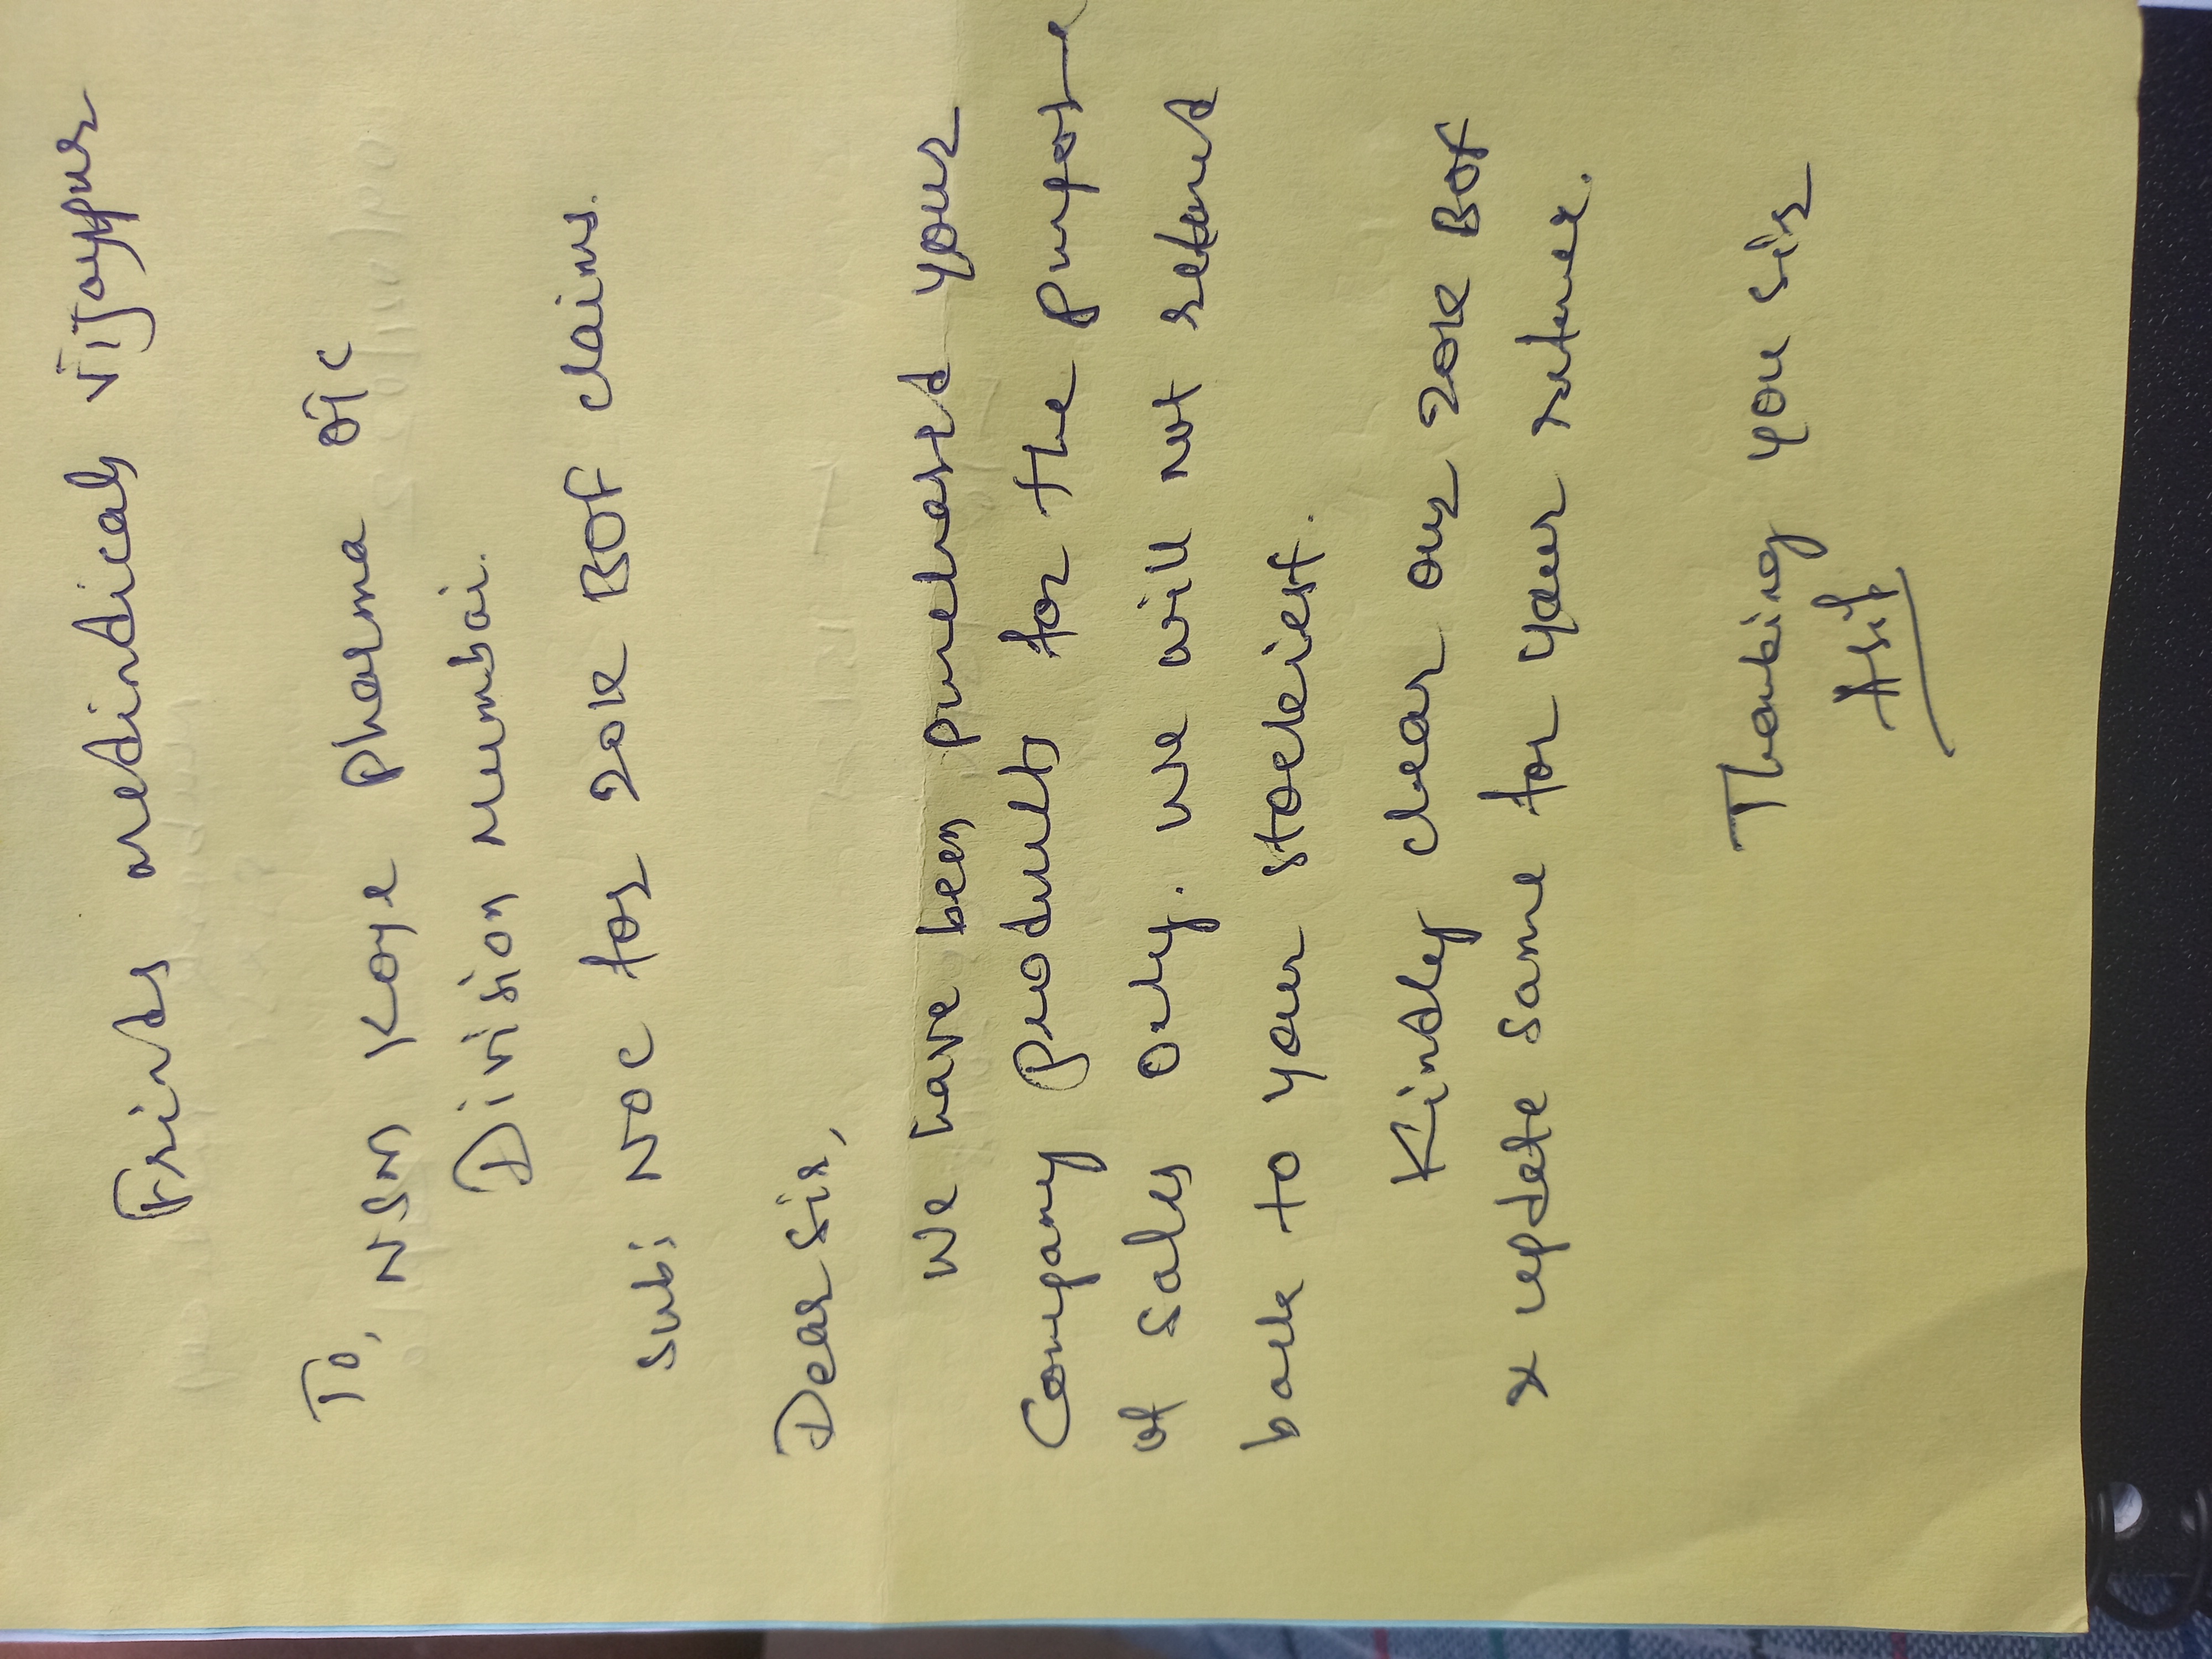 Frinds medindicals Vijaypur
To, NSM Koye Pharma OTC
Division mumbai.
Sub: NOC for 20K BOF claims.
Dear Sir,
we have been purchased your
Company products for the purpose
of sales only. we will not retund
back to your stockiest.
Kindley clear our 20K BOF
& update same for your
Thanking you sir
Asif